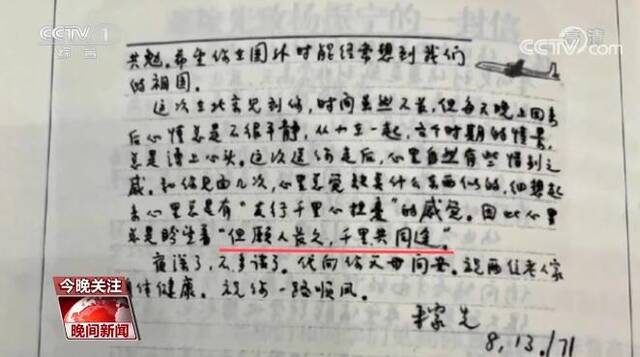 CCTV 1
综合
CCTV
高清
共勉。希望你在国外时能经常想到我们
的祖国。
这次在北京见到你，时间虽然不长，但每天晚上回来
后心情总是不很平静，从小在一起，各个时期的情景，
总是涌上心头。这次送你走后，心里自然有些惜别之
感。和你见面几次，心里总觉缺点什么东西似的，细想起
来心里总是有“友行千里心担忧”的感觉。因此心里
总是盼望着“但愿人长久，千里共同途”。
夜深了，不多谈了。代向你父母问安。祝两位老人家
身体健康。祝你一路顺风。
稼先
8.13./71
今晚关注
晚间新闻